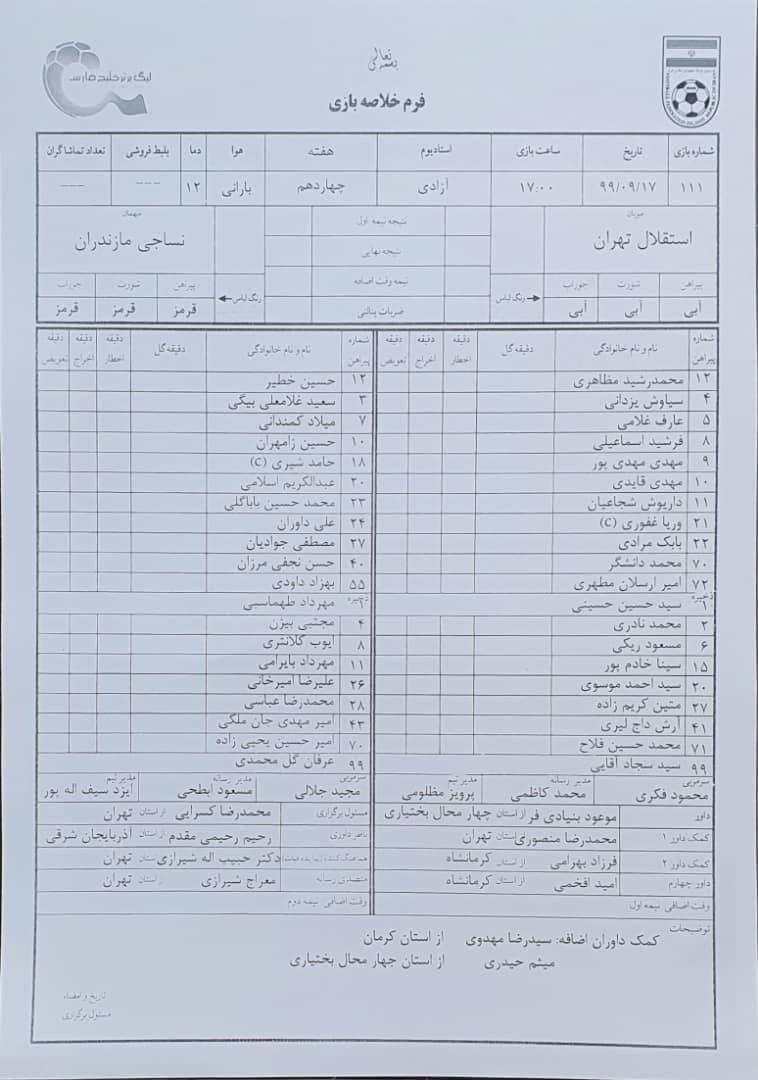 بسمه تعالی
لیگ برتر خلیج فارس
فرم خلاصه بازی
شماره بازی تاریخ ساعت بازی استادیوم هفته هوا دما بلیط فروشی تعداد تماشاگران
۱۱۱ ۹۹/۰۹/۱۷ ۱۷:۰۰ آزادی چهاردهم بارانی ۱۲ --- ---
میزبان نتیجه نیمه اول میهمان
استقلال تهران نتیجه نهایی نساجی مازندران
پیراهن شورت جوراب رنگ لباس نیمه وقت اضافه رنگ لباس پیراهن شورت جوراب
آبی آبی آبی ضربات پنالتی قرمز قرمز قرمز
شماره پیراهن نام و نام خانوادگی دقیقه گل دقیقه اخطار دقیقه اخراج دقیقه تعویض شماره پیراهن نام و نام خانوادگی دقیقه گل دقیقه اخطار دقیقه اخراج دقیقه تعویض
۱۲ محمدرشید مظاهری ۱۲ حسین خطیر
۴ سیاوش یزدانی ۳ سعید غلامعلی بیگی
۵ عارف غلامی ۷ میلاد کمندانی
۸ فرشید اسماعیلی ۱۰ حسین زامهران
۹ مهدی مهدی پور ۱۸ حامد شیری (C)
۱۰ مهدی قایدی ۲۰ عبدالکریم اسلامی
۱۱ داریوش شجاعیان ۲۳ محمد حسین باباگلی
۲۱ وریا غفوری (C) ۲۴ علی داوران
۲۲ بابک مرادی ۲۷ مصطفی جوادیان
۷۰ محمد دانشگر ۴۰ حسن نجفی مرزان
۷۲ امیر ارسلان مطهری ۵۵ بهزاد داودی
ذخیره ۱ سید حسین حسینی ذخیره ۱ مهرداد طهماسبی
۲ محمد نادری ۴ مجتبی بیژن
۶ مسعود ریکی ۸ ایوب کلانتری
۱۵ سینا خادم پور ۱۱ مهرداد بایرامی
۲۰ سید احمد موسوی ۲۶ علیرضا امیرخانی
۲۷ متین کریم زاده ۲۸ محمدرضا عباسی
۴۱ آرش داج لیری ۴۳ امیر مهدی جان ملکی
۷۱ محمد حسین فلاح ۷۰ امیر حسین یحیی زاده
۹۹ سید سجاد آقایی ۹۹ عرفان گل محمدی
سرمربی محمود فکری مدیر رسانه محمد کاظمی مدیر تیم پرویز مظلومی سرمربی مجید جلالی مدیر رسانه مسعود ابطحی مدیر تیم ایزد سیف اله پور
داور موعود بنیادی فر از استان چهار محال بختیاری مسئول برگزاری محمدرضا کسرایی از استان تهران
کمک داور ۱ محمدرضا منصوری از استان تهران ناظر داوری رحیم رحیمی مقدم از استان آذربایجان شرقی
کمک داور ۲ فرزاد بهرامی از استان کرمانشاه دکتر حبیب اله شیرازی استان تهران
داور چهارم امید افخمی از استان کرمانشاه متصدی رسانه معراج شیرازی از استان تهران
وقت اضافی نیمه اول وقت اضافی نیمه دوم
توضیحات
کمک داوران اضافه: سیدرضا مهدوی از استان کرمان
میثم حیدری از استان چهار محال بختیاری
تاریخ و امضاء
مسئول برگزاری